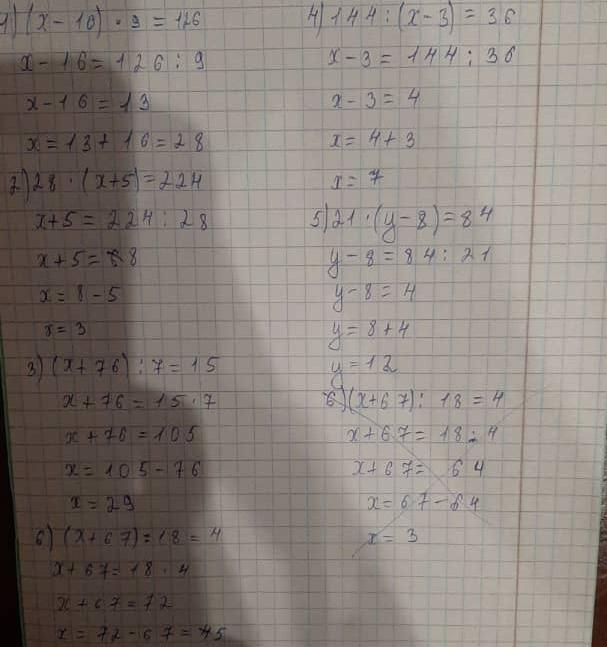 1) (x - 16) · 9 = 126
x - 16 = 126 : 9
x - 16 = 13
x = 13 + 16 = 28
2) 28 · (x+5) = 224
x+5 = 224 : 28
x+5 = 8
x = 8 - 5
x = 3
3) (x + 76) : 7 = 15
x + 76 = 15 · 7
x + 76 = 105
x = 105 - 76
x = 29
6) (x + 67) : 18 = 4
x + 67 = 18 · 4
x + 67 = 72
x = 72 - 67 = 5
4) 144 : (x - 3) = 36
x - 3 = 144 : 36
x - 3 = 4
x = 4 + 3
x = 7
5) 21 · (y - 8) = 84
y - 8 = 84 : 21
y - 8 = 4
y = 8 + 4
y = 12
6) (x + 67) : 18 = 4
x + 67 = 18 : 4
x + 67 = 64
x = 67 - 64
x = 3